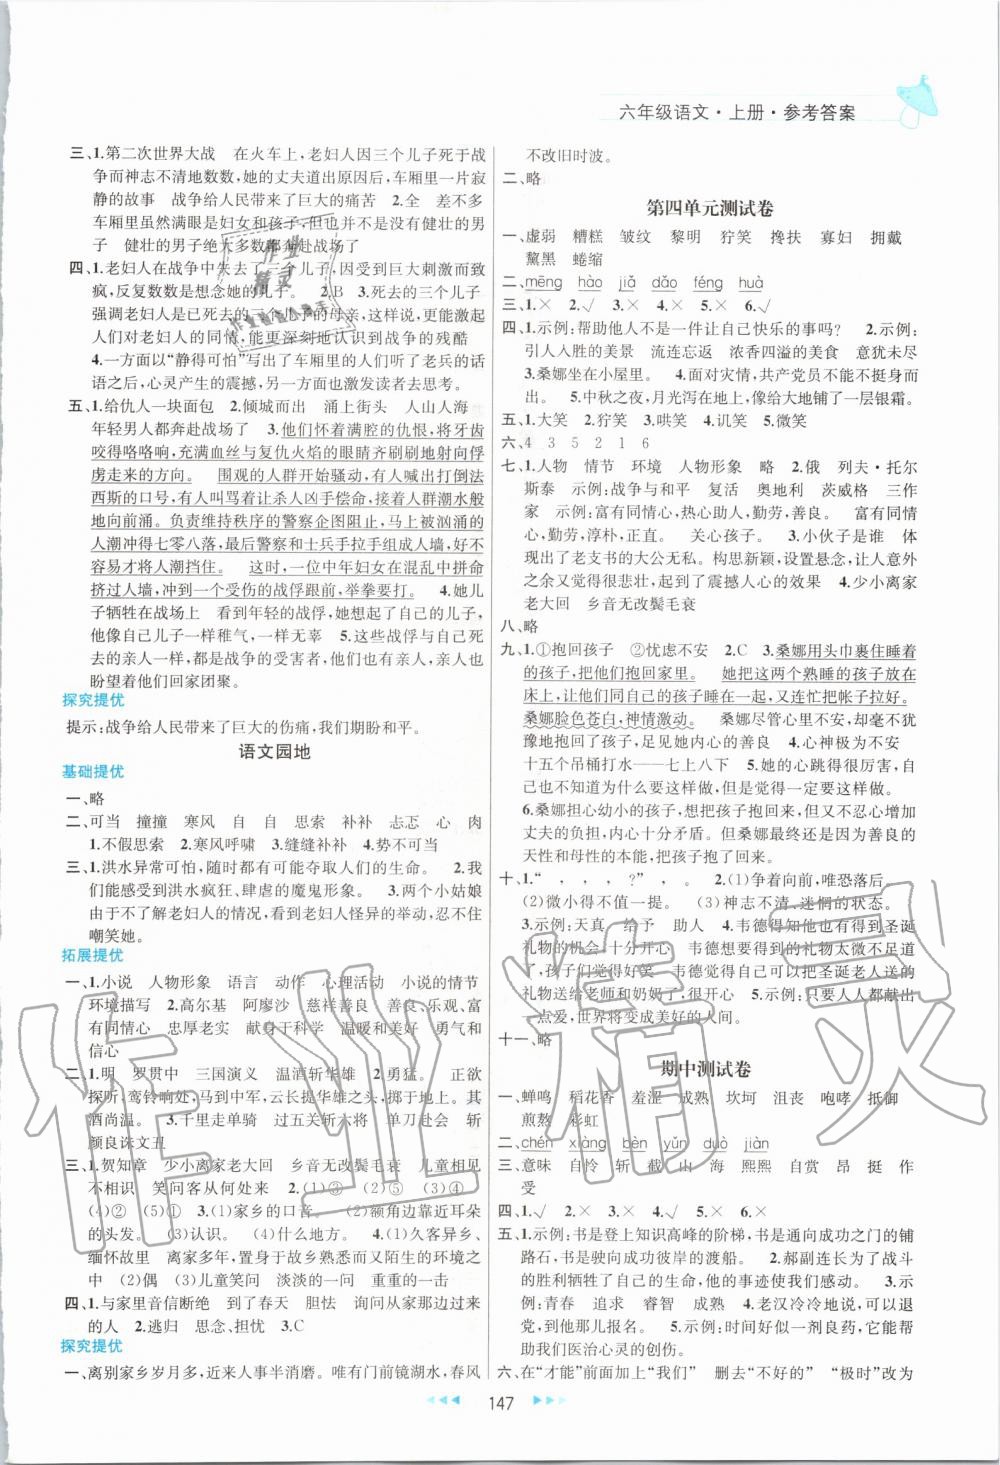 六年级语文·上册·参考答案
三、1.第二次世界大战　在火车上,老妇人因三个儿子死于战
争而神志不清地数数,她的丈夫道出原因后,车厢里一片寂
静的故事　战争给人民带来了巨大的痛苦　2.全　差不多
车厢里虽然满是妇女和孩子,但并不是没有健壮的男
子　健壮的男子绝大多数都奔赴战场了
四、1.老妇人在战争中失去了三个儿子,因受到巨大刺激而致
疯,反复数数是想念她的儿子。　2.B　3.死去的三个儿子
强调老妇人是已死去的三个儿子的母亲,这样写,更能激起
人们对老妇人的同情,能更深刻地认识到战争的残酷
4.一方面以“静得可怕”写出了车厢里的人们听了老兵的话
语之后,心灵产生的震撼,另一方面也激发读者去思考。
五、1.给仇人一块面包　2.倾城而出　涌上街头　人山人海
年轻男人都奔赴战场了　3.他们怀着满腔的仇恨,将牙齿
咬得咯咯响,充满血丝与复仇火焰的眼睛齐刷刷地射向俘
虏走来的方向。　围观的人群开始骚动,有人喊叫着打倒法
西斯的口号,有人叫骂着让杀人凶手偿命,接着人群潮水般
地向前涌。负责维持秩序的警察企图阻止,马上被汹涌的
人潮冲得七零八落,最后警察和士兵手拉手组成人墙,好不
容易才将人潮挡住。　这时,一位中年妇女在混乱中拼命
挤过人墙,冲到一个受伤的战俘跟前,举拳要打。　4.她儿
子牺牲在战场上　看到年轻的战俘,她想起了自己的儿子,
他们像儿子一样稚气,一样无辜　5.这些战俘与自己死
去的亲人一样,都是战争的受害者,他们也有亲人,亲人也
盼望着他们回家团聚。
探究提优
提示:战争给人民带来了巨大的伤痛,我们期盼和平。
语文园地
基础提优
一、略
二、可当　撞撞　寒风　自　自　思索　补补　忐忑　心　肉
1.不假思索　2.寒风呼啸　3.缝缝补补　4.势不可当
三、1.洪水异常可怕,随时都有可能夺取人们的生命。　2.我
们能感受到洪水疯狂、肆虐的魔鬼形象。　3.两个小姑娘
由于不了解老妇人的情况,看到老妇人怪异的举动,忍不住
嘲笑她。
拓展提优
一、1.小说　人物形象　语言　动作　心理活动　小说的情节
环境描写　2.高尔基　阿廖沙　慈祥善良　善良、乐观、富
有同情心　忠厚老实　献身于科学　温暖和美好　勇气和
信心
二、1.明　罗贯中　三国演义　温酒斩华雄　2.勇猛。　正欲
探听,鸾铃响处,马到中军,云长提华雄之头,掷于地上。其
酒尚温。　3.千里走单骑　过五关斩六将　单刀赴会　斩
颜良诛文丑
三、1.贺知章　少小离家老大回　乡音无改鬓毛衰　儿童相见
不相识　笑问客从何处来　2.(1)③　(2)⑤　(3)④
(4)②　(5)①　3.(1)家乡的口音。　(2)额角边靠近耳朵
的头发。　(3)认识。　(4)什么地方。　4.(1)久客异乡、
缅怀故里　离家多年,置身于故乡熟悉而又陌生的环境之
中　(2)偶　(3)儿童笑问　淡淡的一问　重重的一击
四、1.与家里音信断绝　到了春天　胆怯　询问从家乡来的
人　2.逃归　思念、担忧　3.C
探究提优
一、离别家乡岁月多,近来人事半消磨。唯有门前镜湖水,春风
不改旧时波。
二、略
第四单元测试卷
一、虚弱　糟糕　皱纹　黎明　狞笑　搀扶　寡妇　拥戴
黧黑　蜷缩
二、mēng　hào　jiǎ　dǎo　féng　huà
三、1.×　2.√　3.×　4.×　5.×　6.√
四、1.示例:帮助他人不是一件让自己快乐的事吗?　2.示例:
引人入胜的美景　流连忘返　浓香四溢的美食　意犹未尽
3.桑娜坐在小屋里。　4.面对灾情,共产党员不能不挺身而
出。　5.中秋之夜,月光泻在地上,像给大地铺了一层银霜。
五、1.大笑　2.狞笑　3.哄笑　4.讥笑　5.微笑
六、4　3　5　2　1　6
七、1.人物　情节　环境　人物形象　略　2.俄　列夫·托尔
斯泰　示例:战争与和平　复活　奥地利　茨威格　三作
家　示例:富有同情心,热心助人,勤劳,善良。　富有同情
心,勤劳,淳朴,正直。　关心孩子。　3.小伙子是谁　体
现出了老支书的大公无私。构思新颖,设置悬念,让人意外
之余觉得很悲壮,起到了震撼人心的效果　4.少小离家
老大回　乡音无改鬓毛衰
八、略
九、1.①抱回孩子　②忧虑不安　2.C　3.桑娜用头巾裹住睡着
的孩子,把他们抱回家里。　她把这两个熟睡的孩子放在
床上,让他们同自己的孩子睡在一起,又连忙把帐子拉好。
桑娜脸色苍白,神情激动。　桑娜尽管心里不安,却毫不犹
豫地抱回了孩子,足见她内心的善良　4.心神极为不安
十五个吊桶打水——七上八下　5.她的心跳得很厉害,
自己也不知道为什么要这样做,但是觉得一定要这样做。
6.桑娜担心幼小的孩子,想把孩子抱回来,但又怕因此增加
丈夫的负担,内心十分矛盾。但桑娜最终还是因为善良的
天性和母性的本能,把孩子抱了回来。
十、1.“　,　,　,　?”　,　。　2.(1)争着向前,唯恐落后
(2)微小得不值一提。　(3)神志不清,迷惘的状态。
3.示例:天真　给予　助人　4.韦德得知他也有得到圣诞
礼物的机会十分开心　韦德想要得到的礼物太微不足道
了,同学们觉得好笑　韦德同学们可以把圣诞老人送的
礼物送给老师和奶奶了,很开心　5.示例:只要人人都献出
一点爱,世界将变成美好的人间。
十一、略
期中测试卷
一、蝉鸣　稻花香　羞涩　成熟　坎坷　沮丧　咆哮　抵御
煎熬　彩虹
二、chén　xiàng　bèn　yǔn　duò　jiàn
三、意味　自怜　斩　截　山　海　熙熙　自赏　昂　挺　作
受
四、1.√　2.×　3.×　4.√　5.√
五、1.示例:书是登上知识高峰的阶梯,书是通向成功之门的铺
路石,书是驶向成功彼岸的渡船。　2.郝副连长为了战斗
的胜利牺牲了自己的生命,他的事迹使我们感动。　3.示
例:青春　追求　睿智　成熟　4.老汉冷冷地说,可以退
党,到他那儿报名。　5.示例:书好似一剂良药,它能帮
助我们医治心灵的创伤。
六、在“才能”前面加上“我们”　删去“不好的”　“极时”改为
147